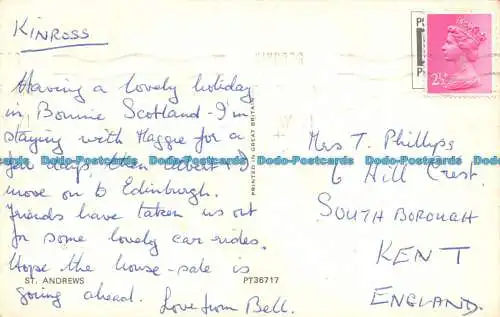 KINROSS
Having a lovely holiday
in Bonnie Scotland - I'm
staying with Maggie for a
few days, then Albert & I
move on to Edinburgh.
Friends have taken us out
for some lovely car-rides.
Hope the house-sale is
going ahead. Love from Bell.
ST. ANDREWS
PT36717
PRINTED IN GREAT BRITAIN
2½P
Mrs T. Phillips
6 Hill Crest.
SOUTH BOROUGH
KENT
ENGLAND.
Dodo-Postcards Dodo-Postcards Dodo-Postcards Dodo-Postcards Dodo-Postcards